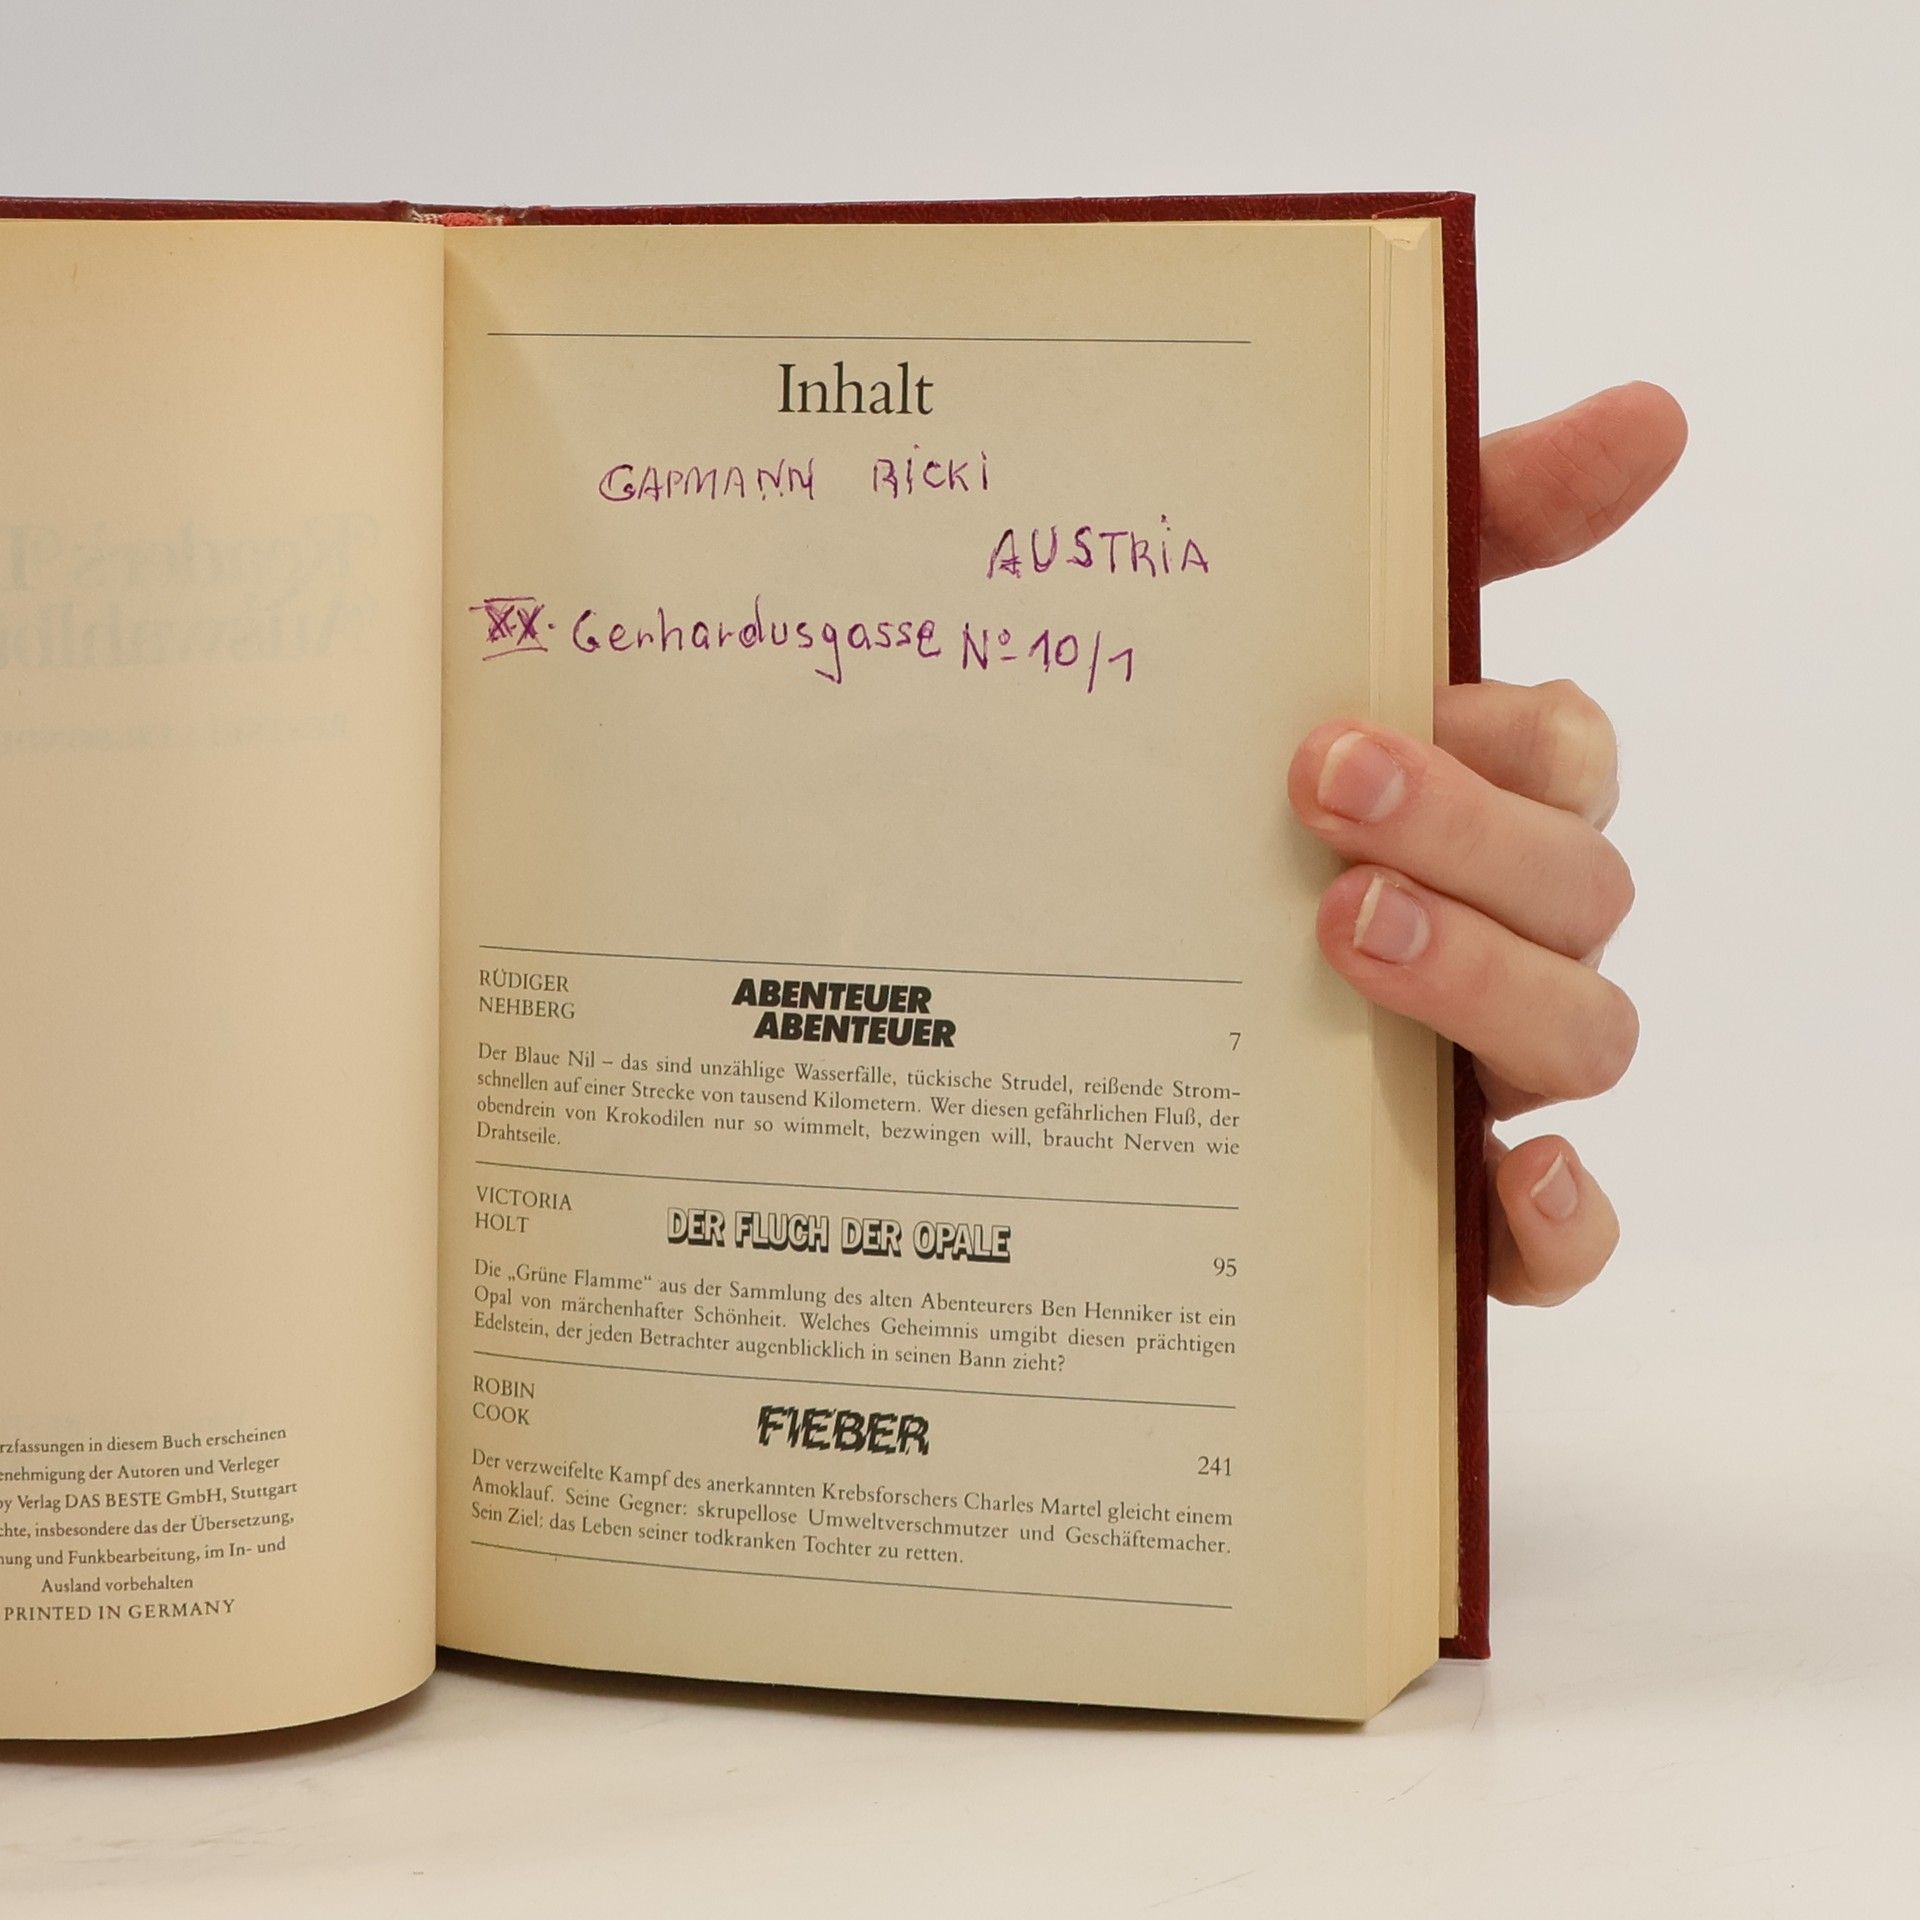 rzfassungen in diesem Buch erscheinen
enehmigung der Autoren und Verleger
by Verlag DAS BESTE GmbH, Stuttgart
chte, insbesondere das der Übersetzung,
nung und Funkbearbeitung, im In- und
Ausland vorbehalten
PRINTED IN GERMANY
Inhalt
GAPMANN RICKI
AUSTRIA
XX. Gerhardusgasse No 10/1
RÜDIGER
NEHBERG
ABENTEUER
ABENTEUER
7
Der Blaue Nil – das sind unzählige Wasserfälle, tückische Strudel, reißende Strom-
schnellen auf einer Strecke von tausend Kilometern. Wer diesen gefährlichen Fluß, der
obendrein von Krokodilen nur so wimmelt, bezwingen will, braucht Nerven wie
Drahtseile.
VICTORIA
HOLT
DER FLUCH DER OPALE
95
Die „Grüne Flamme“ aus der Sammlung des alten Abenteurers Ben Henniker ist ein
Opal von märchenhafter Schönheit. Welches Geheimnis umgibt diesen prächtigen
Edelstein, der jeden Betrachter augenblicklich in seinen Bann zieht?
ROBIN
COOK
FIEBER
241
Der verzweifelte Kampf des anerkannten Krebsforschers Charles Martel gleicht einem
Amoklauf. Seine Gegner: skrupellose Umweltverschmutzer und Geschäftemacher.
Sein Ziel: das Leben seiner todkranken Tochter zu retten.